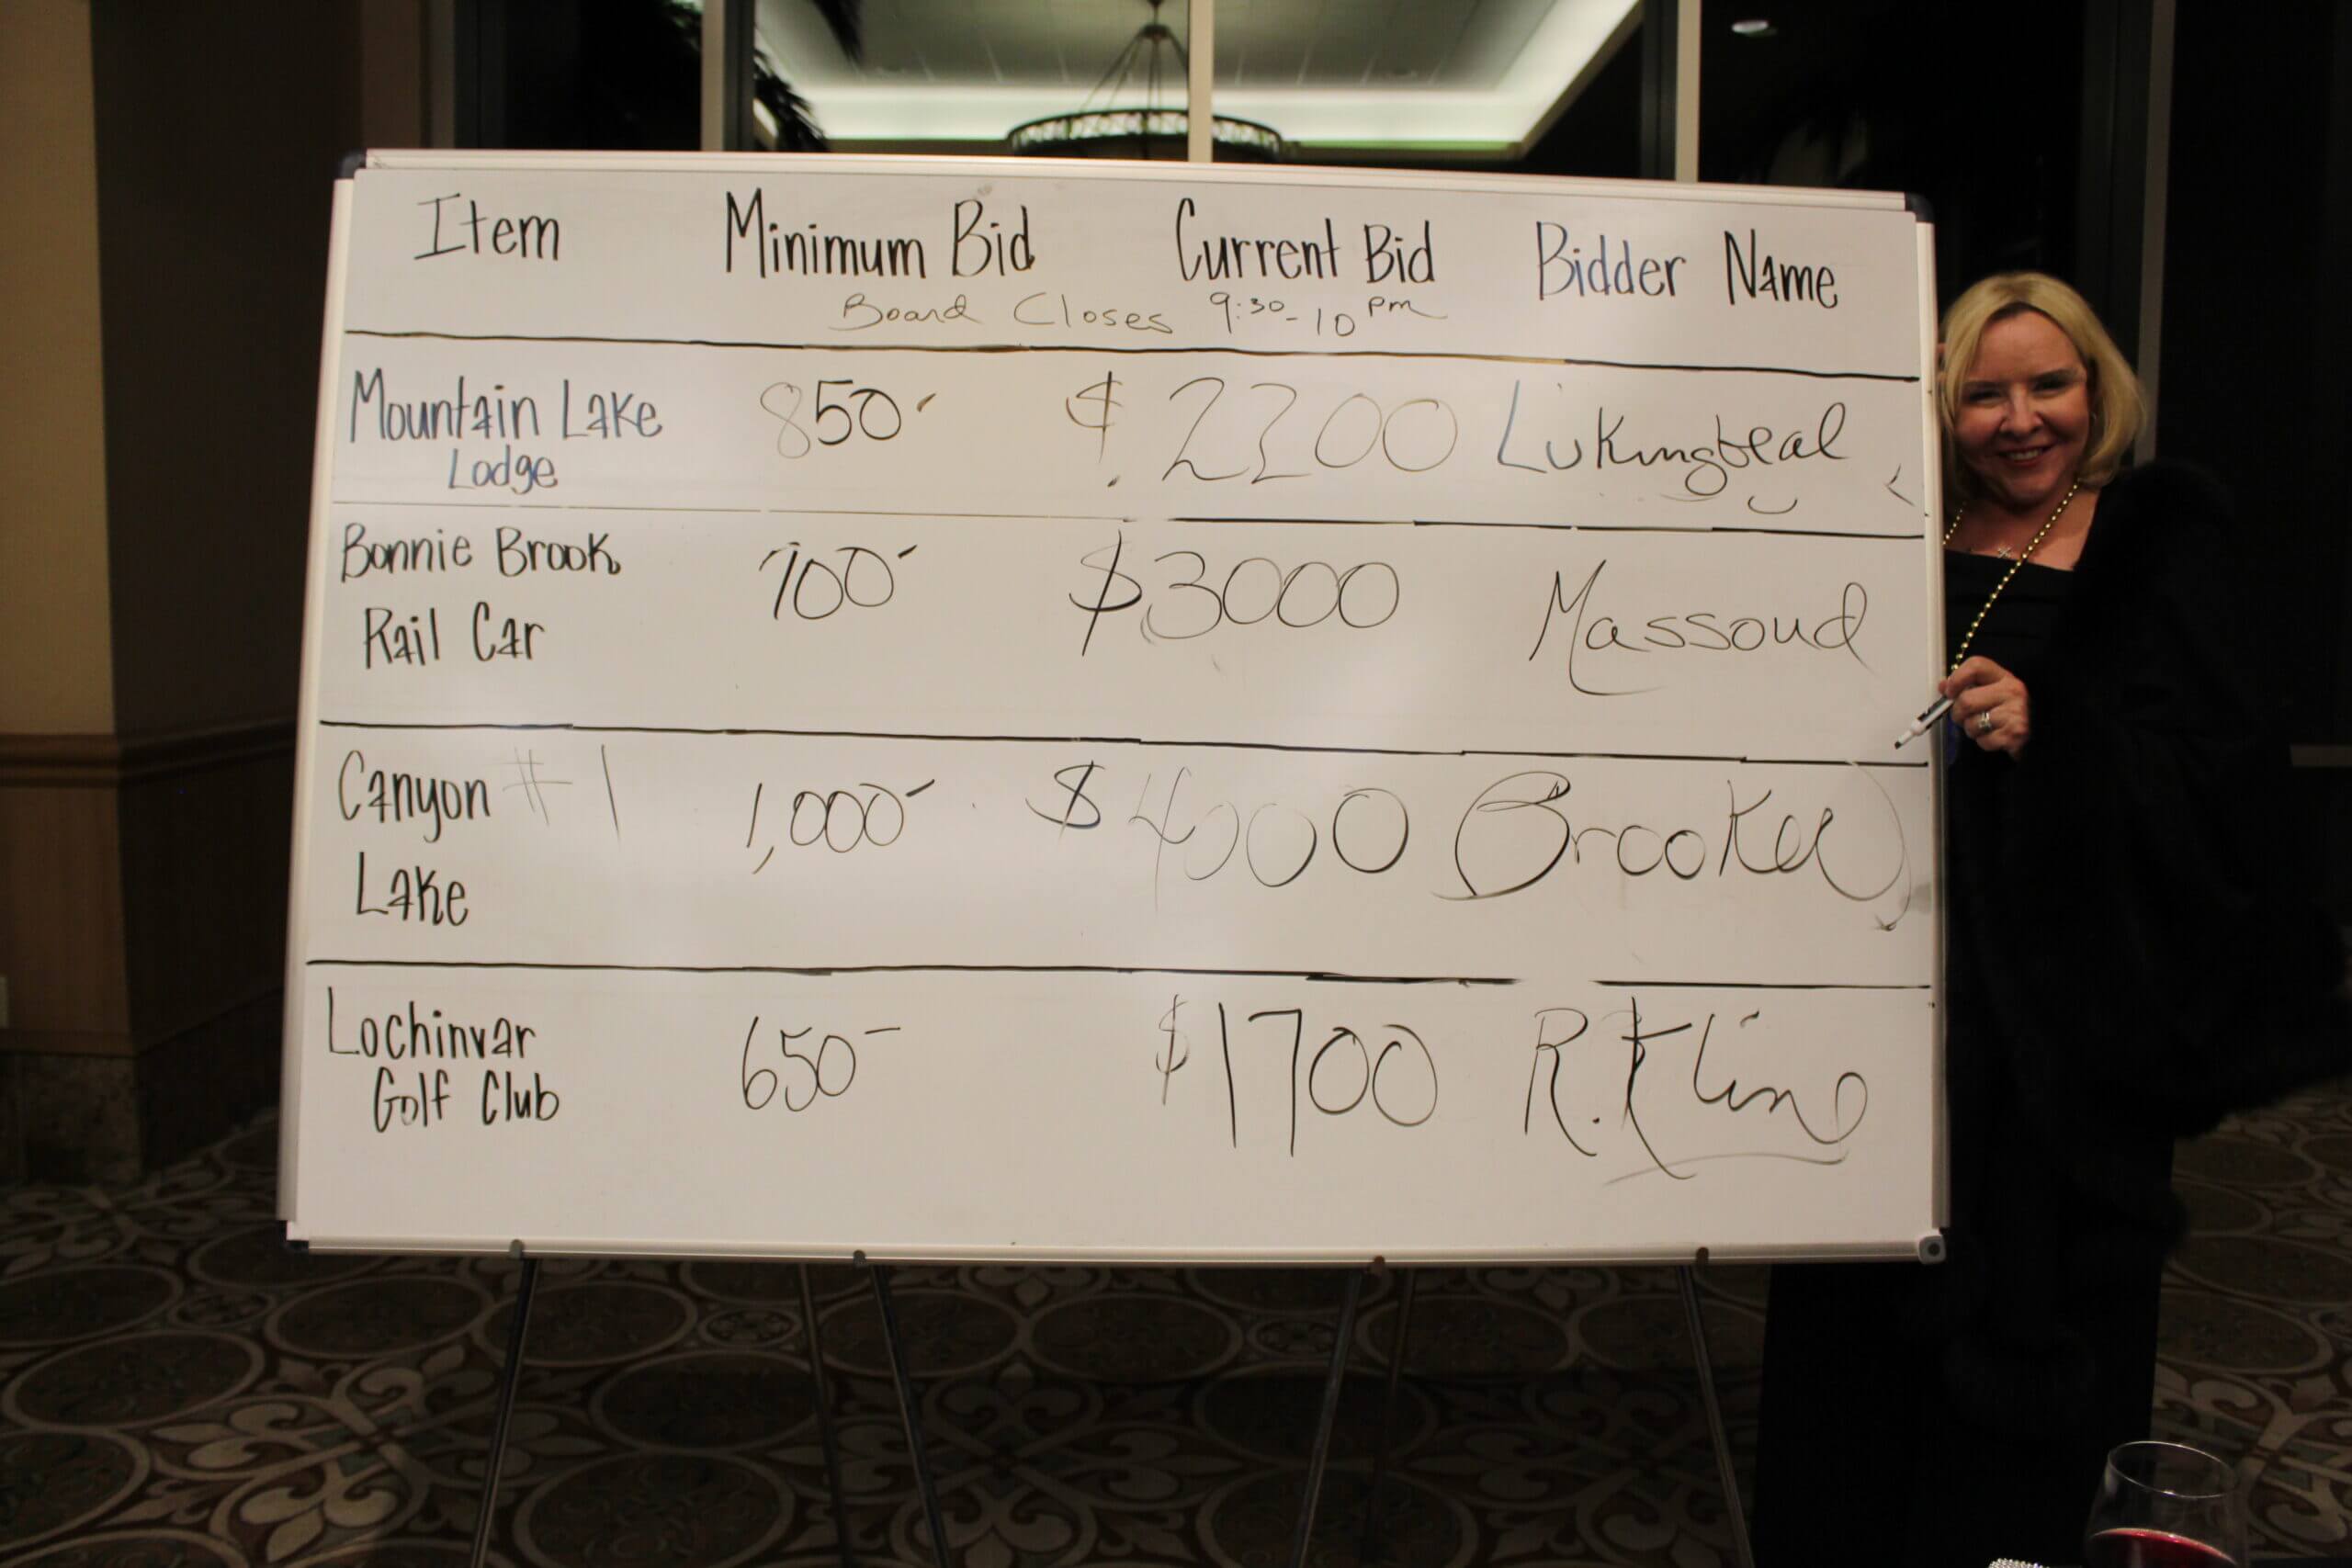 Item Minimum Bid Current Bid Bidder Name
Board Closes 9:30-10 pm
Mountain Lake 850- $2200
Lodge
Bonnie Brook 700- $3000 Massoud
Rail Car
Canyon #1 1,000- $4000
Lake
Lochinvar 650- $1700 R. Kline
Golf Club